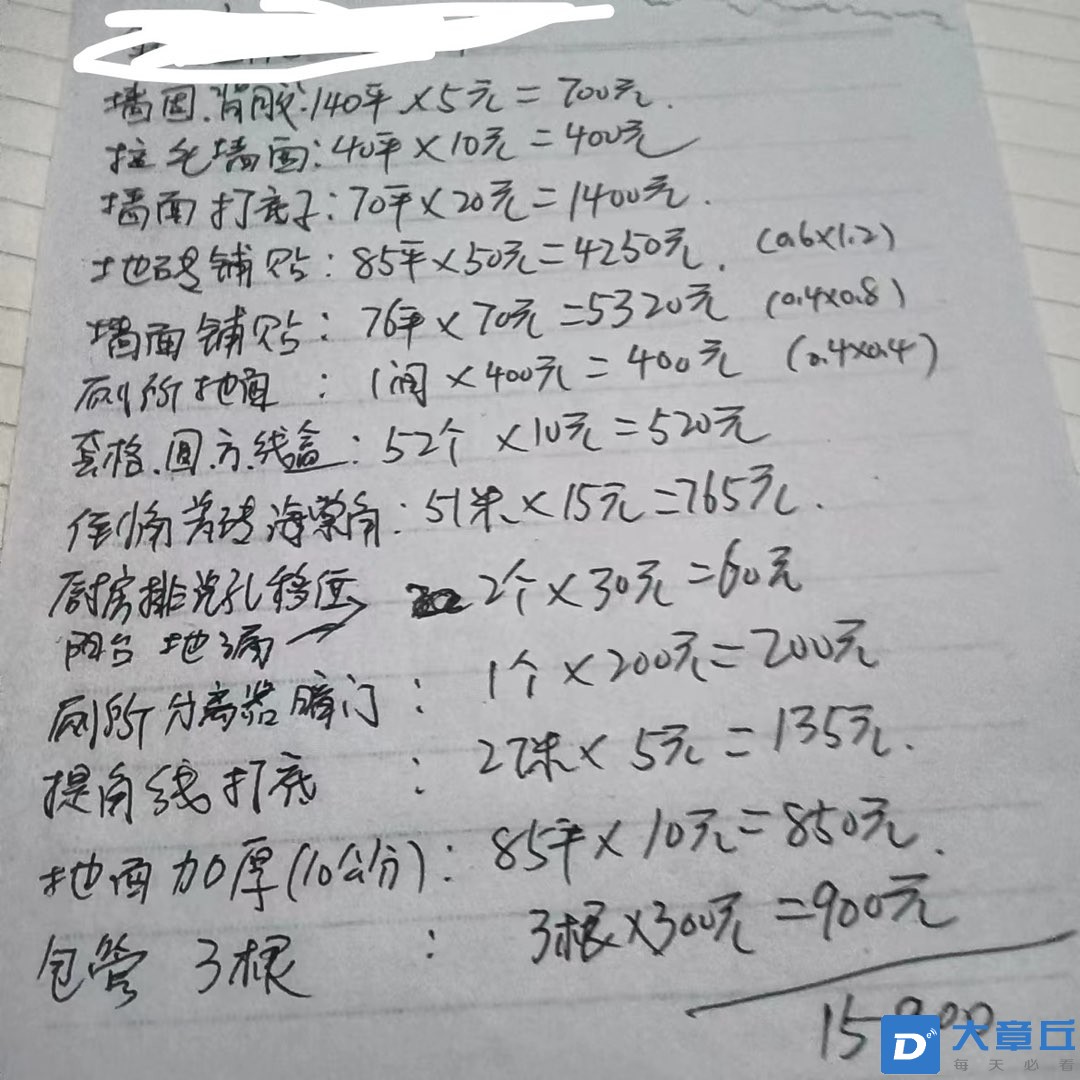 墙固.背胶:140平×5元=700元.
拉毛墙面:40平×10元=400元
墙面打底子:70平×20元=1400元.
地砖铺贴:85平×50元=4250元. (0.6×1.2)
墙面铺贴:76平×70元=5320元 (0.4×0.8)
厕所地面:1间×400元=400元 (0.4×0.4)
套格.圆.方.线盒:52个×10元=520元
倒角瓷砖海棠角:51米×15元=765元.
厨房排烟孔移位 2个×30元=60元
阳台地漏
厕所分离器暗门:1个×200元=200元
提角线打底:27米×5元=135元.
地面加厚(10公分):85平×10元=850元.
包管3根:3根×300元=900元
15900
大章丘
每天必看